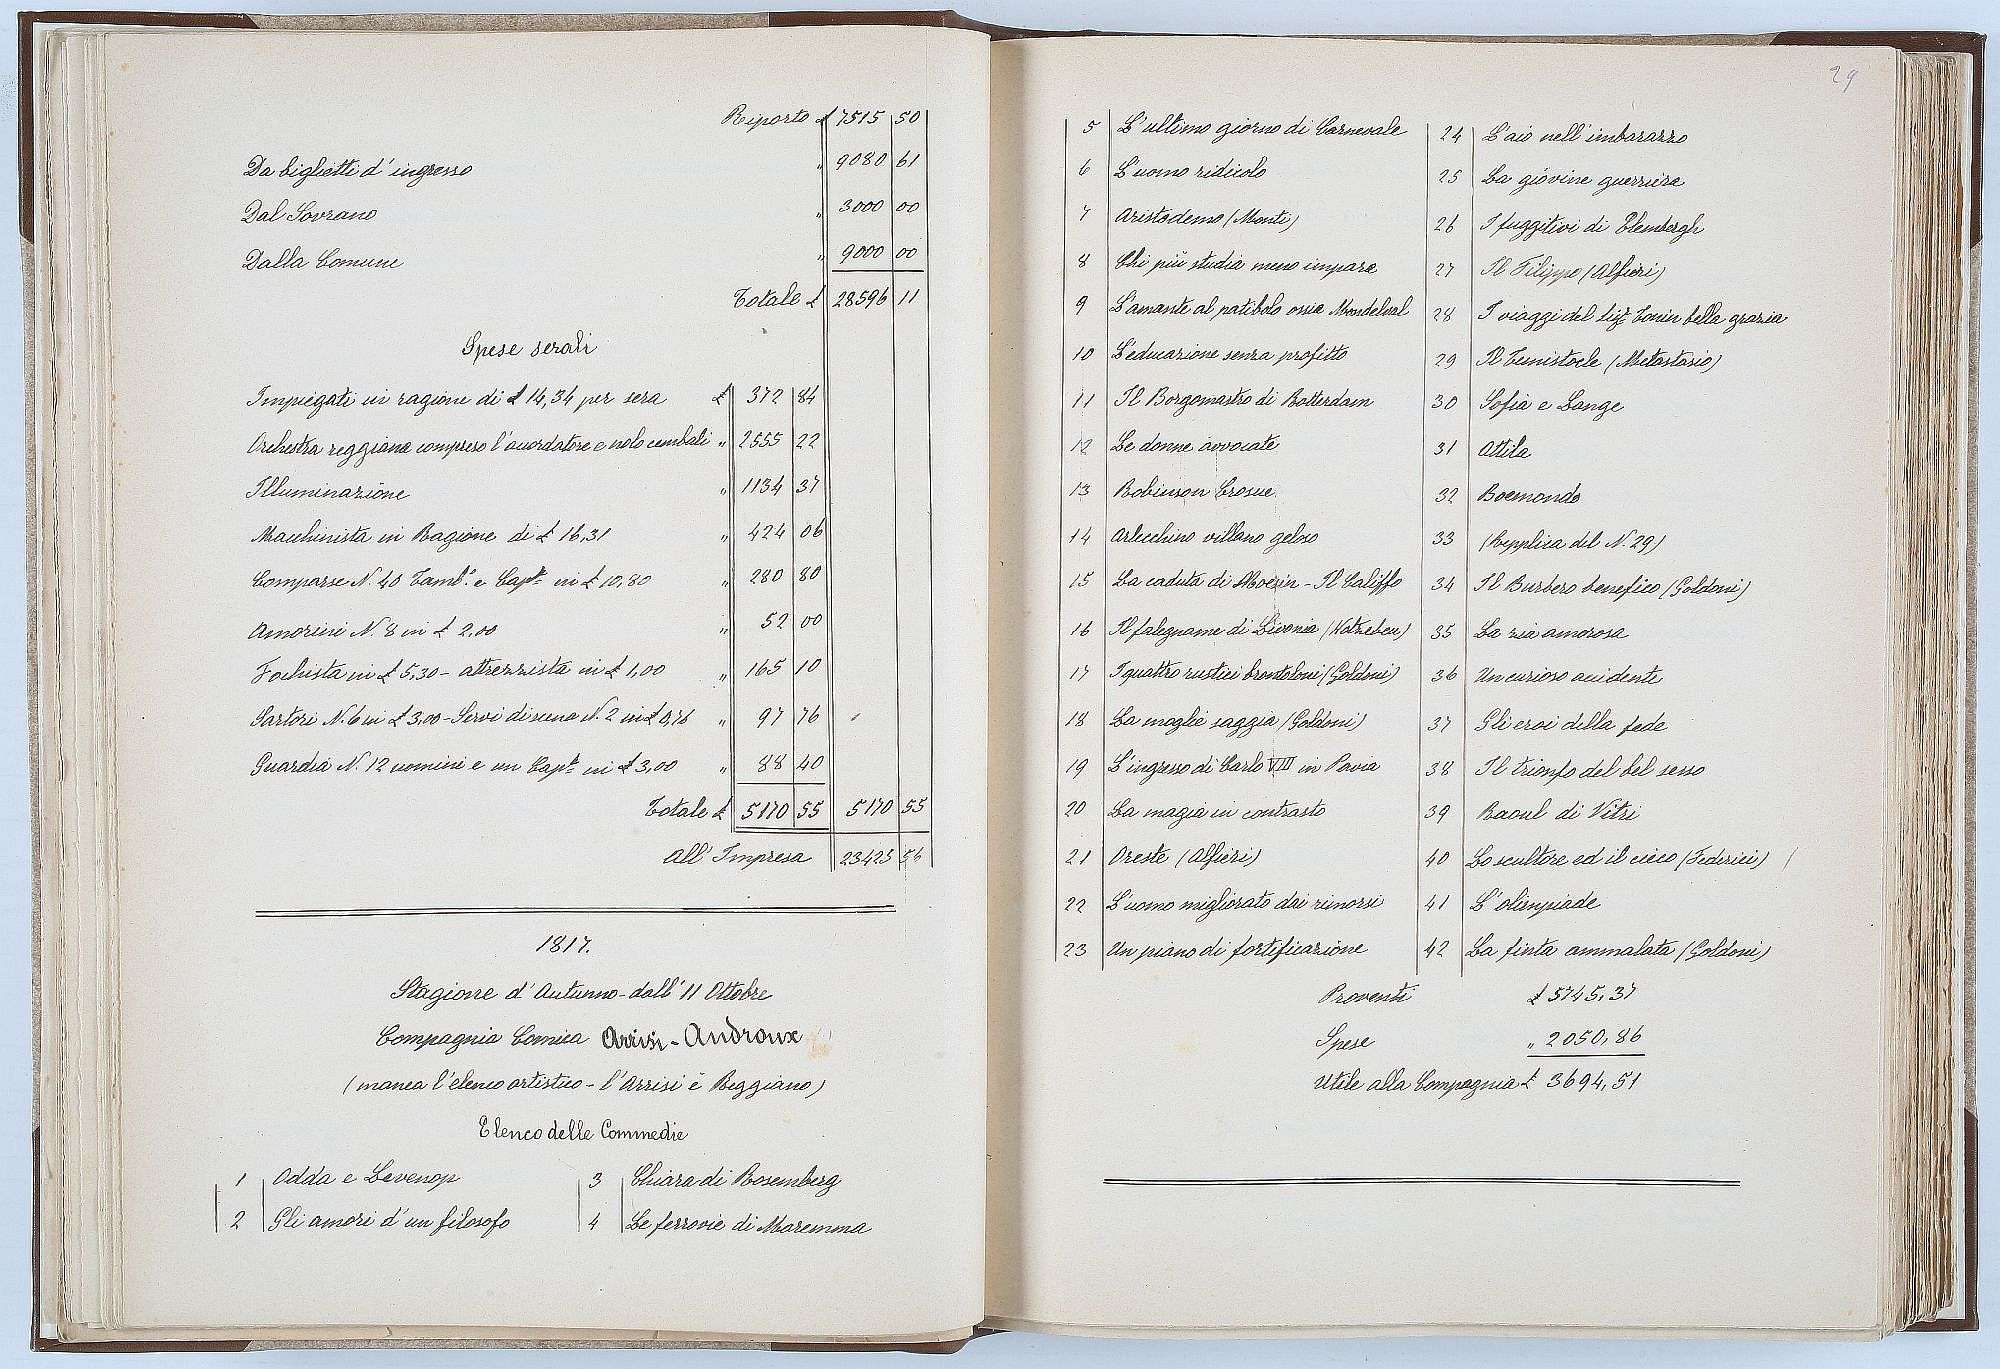 Riporto £ 7515 50
Da biglietti d'ingresso " 9080 61
Dal Sovrano " 3000 00
Dalla Comune " 9000 00
Totale £ 28596 11
Spese serali
Impiegati in ragione di £ 14,34 per sera £ 372 84
Orchestra reggiana compreso l'accordatore e nolo cembali " 2555 22
Illuminazione " 1134 37
Macchinista in Ragione di £ 16,31 " 424 06
Comparse N. 40 Tamb.i e Cap.e in £ 10,80 " 280 80
Amorini N. 8 in £ 2,00 " 52 00
Fochista in £ 5,30 - attrezzista in £ 1,00 " 165 10
Sartori N. 6 in £ 3,00 - Servi di scena N. 2 in £ 0,76 " 97 76
Guardia N. 12 uomini e un Cap.e in £ 3,00 " 88 40
Totale £ 5170 55 5170 55
All'Impresa 23425 56
1817.
Stagione d'Autunno - dall'11 Ottobre
Compagnia Comica Arrisi - Androux
(manca l'elenco artistico - l'Arrisi è Reggiano)
Elenco delle Commedie
1 Odda e Levenop
2 Gli amori d'un filosofo
3 Chiara di Rosemberg
4 Le ferrovie di Maremma
29
5 L'ultimo giorno di Carnevale
6 L'uomo ridicolo
7 Aristodemo (Monti)
8 Chi più studia meno impara
9 L'amante al patibolo ossia Mondelval
10 L'educazione senza profitto
11 Il Borgomastro di Rotterdam
12 Le donne avvocate
13 Robinson Crosue
14 Arlecchino villano geloso
15 La caduta di Moesin - Il Califfo
16 Il falegname di Livonia (Kotzebeu)
17 I quattro rustici brontoloni (Goldoni)
18 La moglie saggia (Goldoni)
19 L'ingresso di Carlo VIII in Pavia
20 La magia in contrasto
21 Oreste (Alfieri)
22 L'uomo migliorato dai rimorsi
23 Un piano di fortificazione
24 L'aio nell'imbarazzo
25 La giovine guerriera
26 I fuggitivi di Elembergh
27 Il Filippo (Alfieri)
28 I viaggi del Sig. Tonin bella grazia
29 Il Temistocle (Metastasio)
30 Sofia e Lange
31 Attila
32 Boemondo
33 (Repplica del N. 29)
34 Il Burbero benefico (Goldoni)
35 La zia amorosa
36 Un curioso accidente
37 Gli eroi della fede
38 Il trionfo del bel sesso
39 Raoul di Vitri
40 Lo scultore ed il cieco (Federici)
41 L'olimpiade
42 La finta ammalata (Goldoni)
Proventi £ 5745,37
Spese " 2050,86
Utile alla Compagnia £ 3694,51